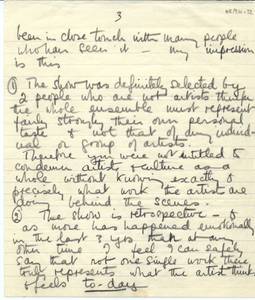 3
been in close touch with many people
who have seen it – my impression
is this
① The show was definitely selected by
2 people who are not artists therefore
the whole ensemble must represent
fairly strongly their own personal
taste & not that of any individ-
ual or group of artists.
Therefore you were not entitled to
condemn artists culture as a
whole without knowing exactly &
precisely what work the artist are
doing behind the scenes.
② The show is retrospective – &
as more has happened emotionally
in the last 3 yrs than at any
other time I feel I can safely
say that not one single work there
truly represents what the artist thinks
& feels to-day